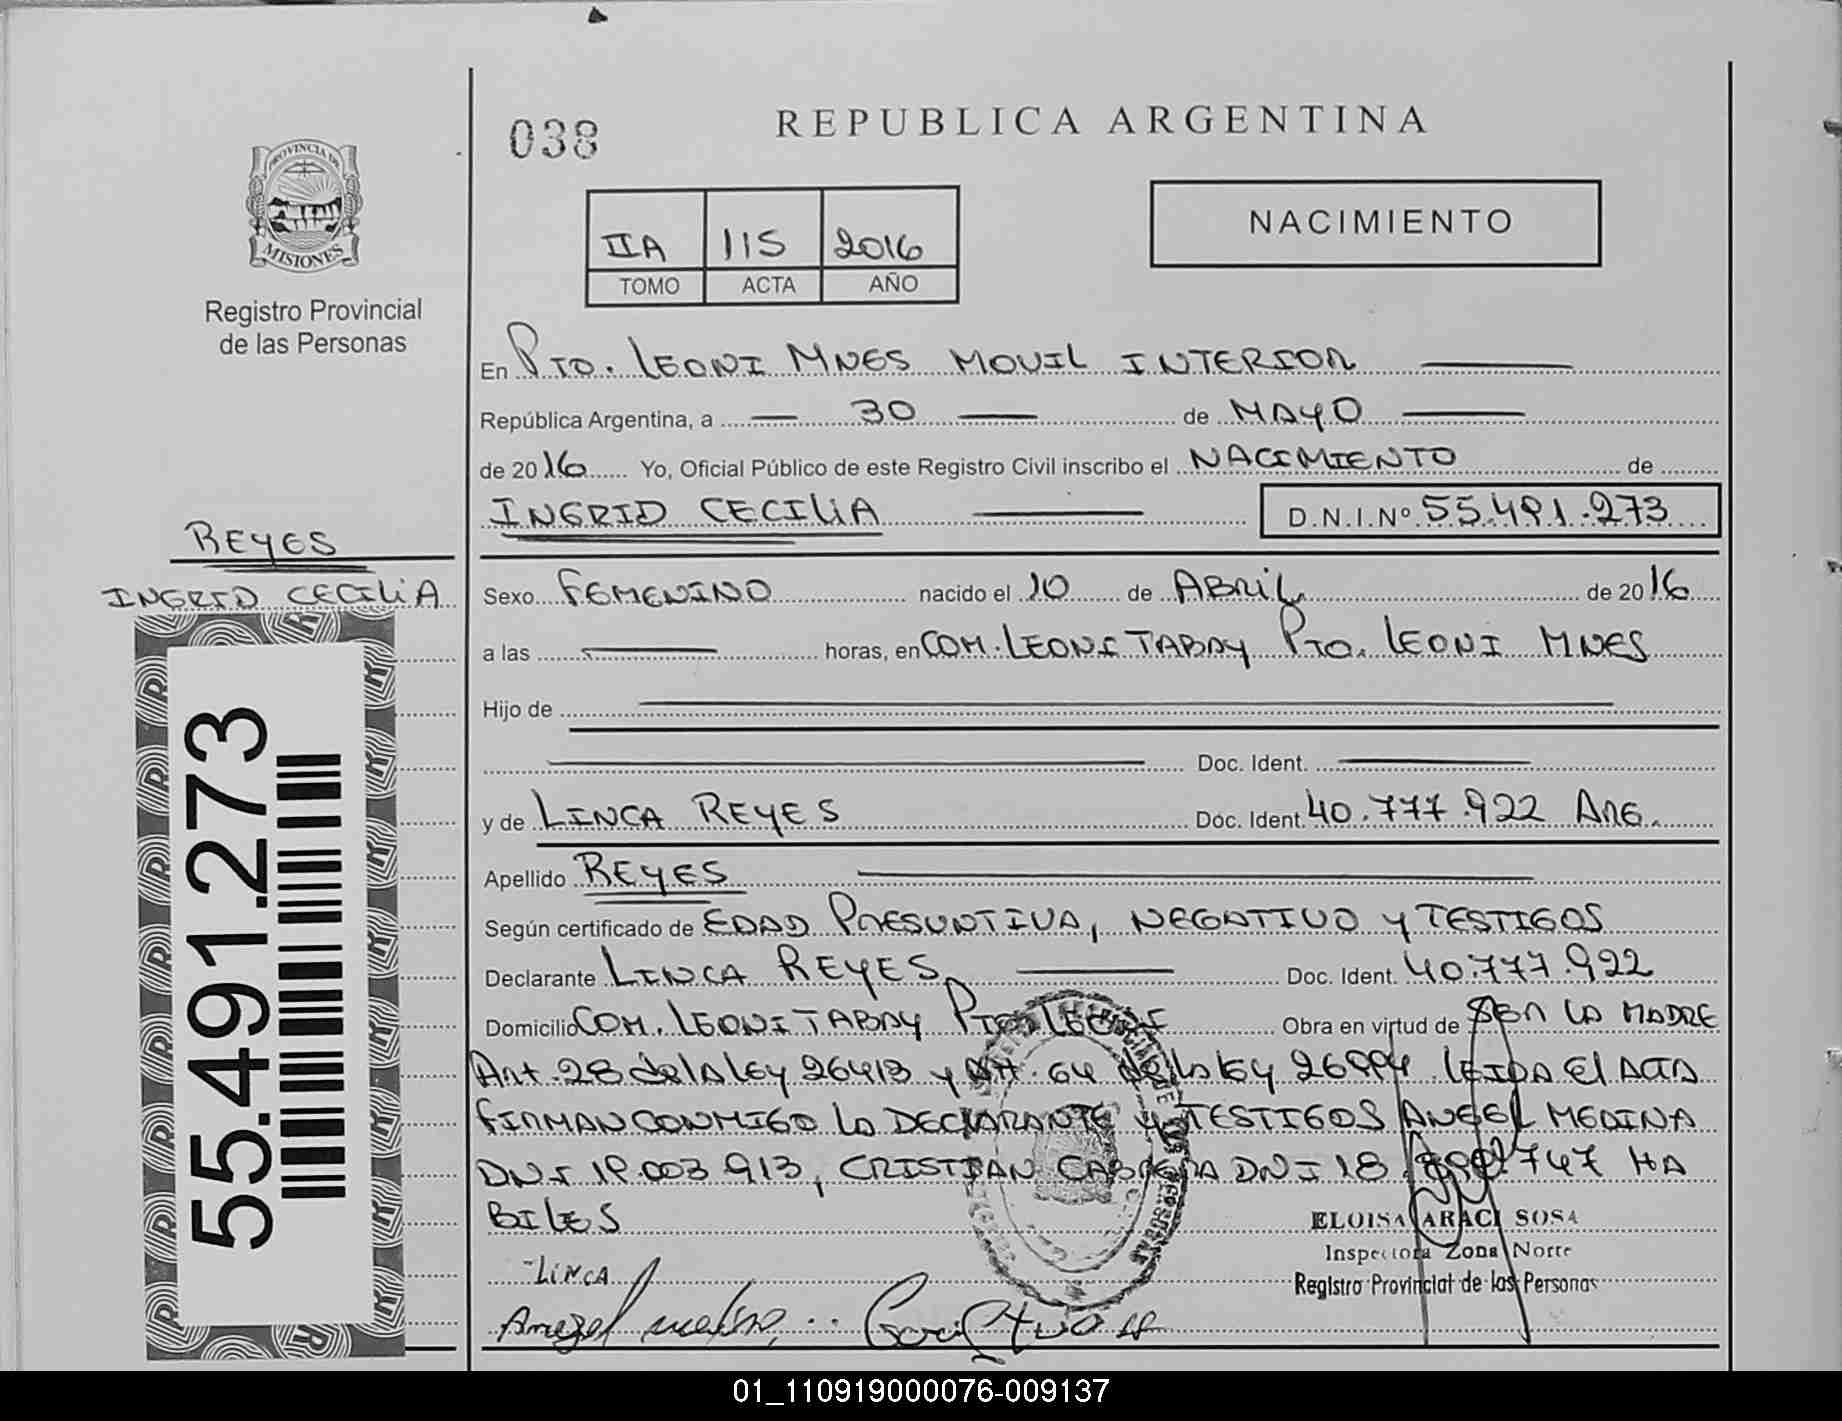 038
REPUBLICA ARGENTINA
PROVINCIA DE
MISIONES
Registro Provincial
de las Personas
IIA 115 2016
TOMO ACTA AÑO
NACIMIENTO
En Pto. LEONI MNES MOVIL INTERIOR
República Argentina, a 30 de MAYO
de 2016 Yo, Oficial Público de este Registro Civil inscribo el NACIMIENTO de
INGRID CECILIA D.N.I.Nº 55.491.273
REYES
INGRID CECILIA
55.491.273
Sexo FEMENINO nacido el 10 de ABRIL de 2016
a las horas, en COM. LEONI TABAY Pto. LEONI MNES
Hijo de
Doc. Ident.
y de LINCA REYES Doc. Ident 40.777.922 ARG.
Apellido REYES
Según certificado de EDAD PRESUNTIVA, NEGATIVO y TESTIGOS
Declarante LINCA REYES Doc. Ident. 40.777.922
Domicilio COM. LEONI TABAY Pto. LEONI Obra en virtud de SER LA MADRE
Art. 28 de la ley 26413 y Art. 64 de la ley 26994 LEIDA El ACTA
FIRMAN CONMIGO LA DECLARANTE y TESTIGOS ANGEL MEDINA
DNI 19.003.913, CRISTIAN CABRERA DNI 18. 747 HA
BILES
ELOISA ARACI SOSA
Inspectora Zona Norte
Registro Provincial de las Personas
LINCA
Angel
01_110919000076-009137